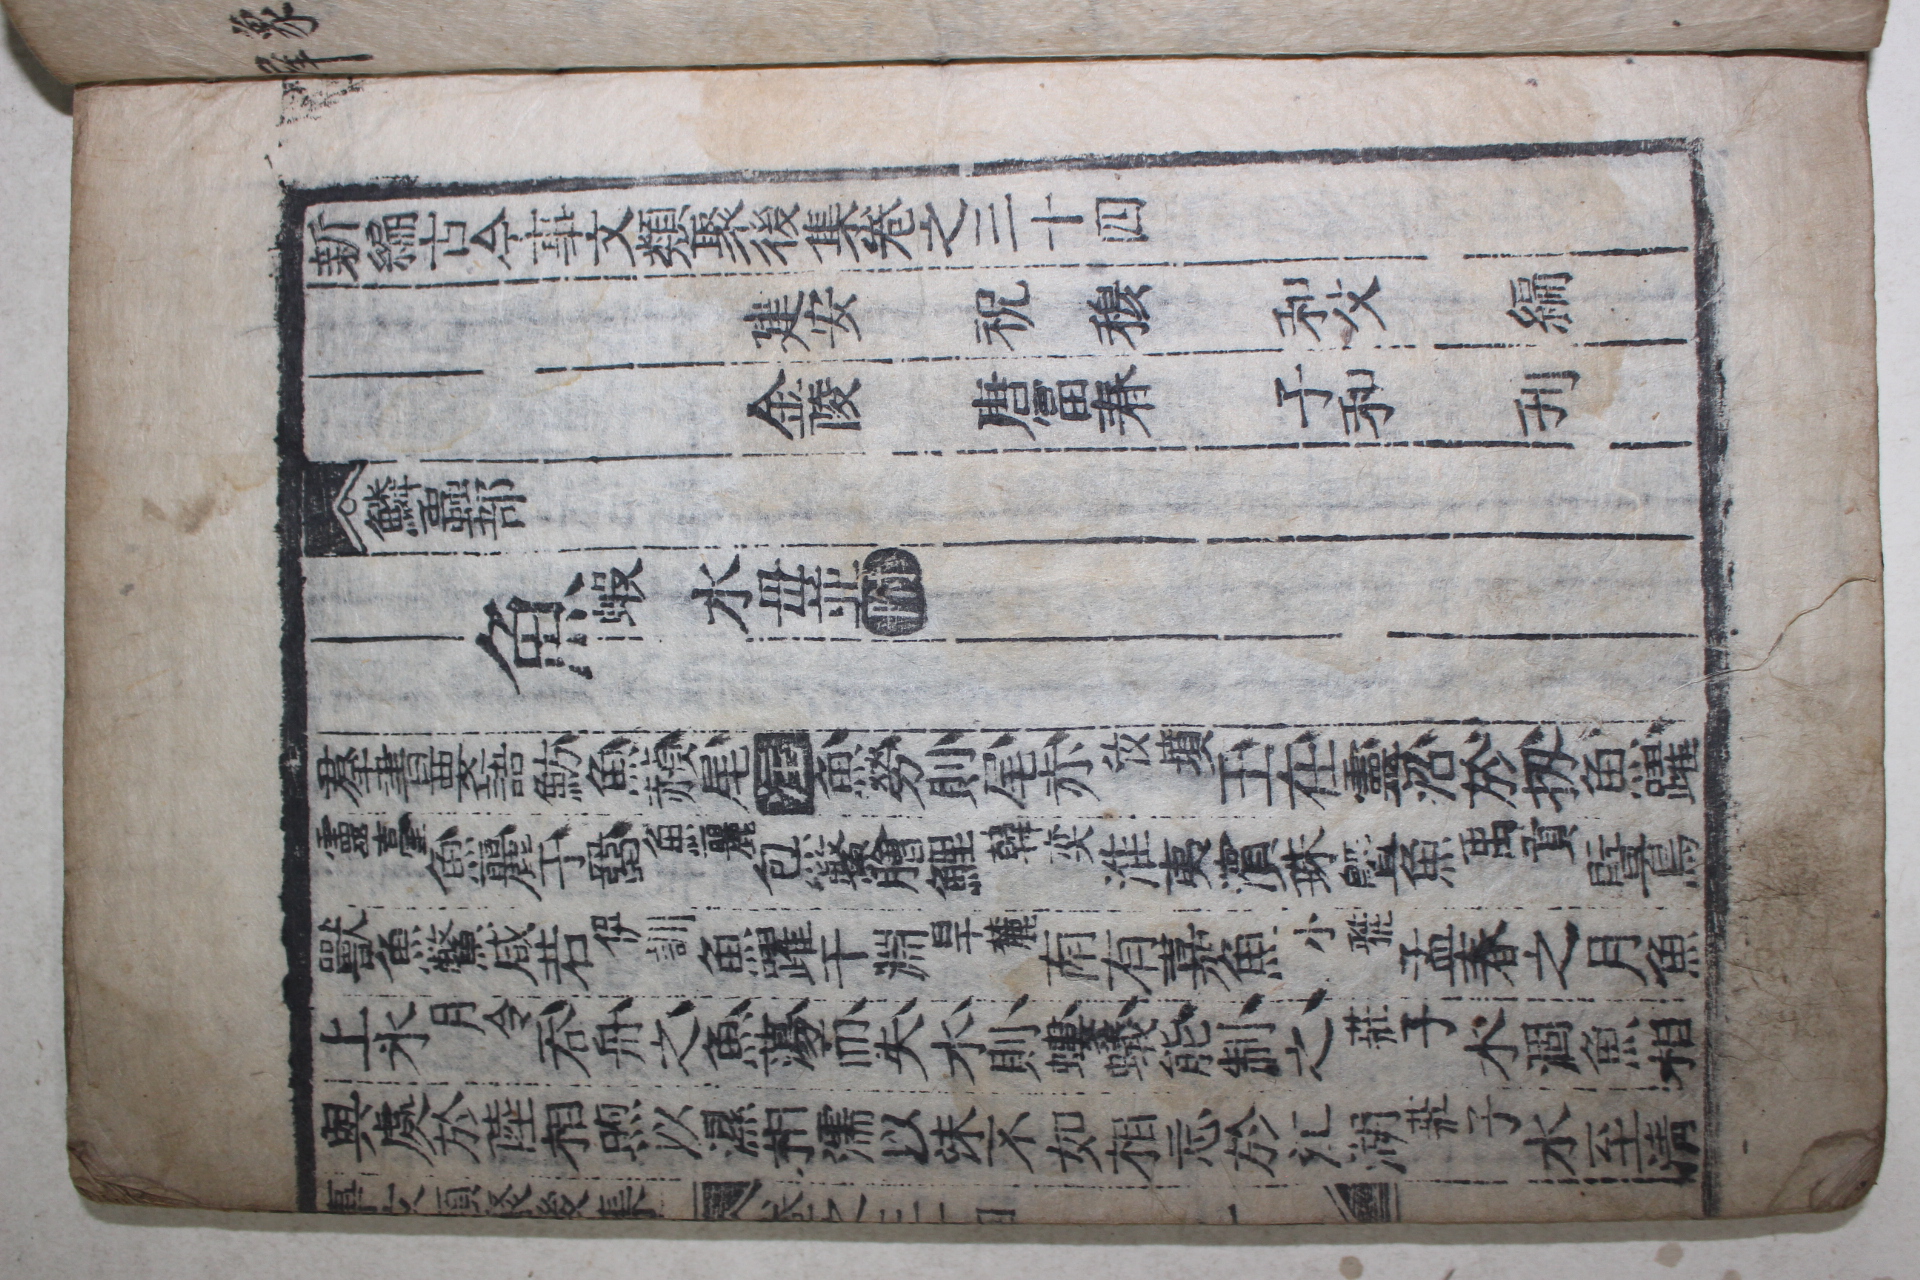 新編古今事文類聚後集卷之三十四
建安 祝 穆 和父 編
金陵 唐富春 子和 刊
鱗蟲部
魚 蝦 水母並附
羣書要語魴魚赬尾注魚勞則尾赤汝墳王在靈沼於牣魚躍
靈臺魚麗于罶魚麗炰鱉膾鯉韓奕淮夷濱珠曁魚禹貢曁鳥
獸魚鱉咸若伊訓魚躍于淵旱麓南有嘉魚小雅孟春之月魚
上氷月令吞舟之魚蕩而失水則螻蟻能制之莊子水涸魚相
與處於陸相煦以濕相濡以沫不如相忘於江湖莊子水至清
事文類聚後集 卷之三十四 一